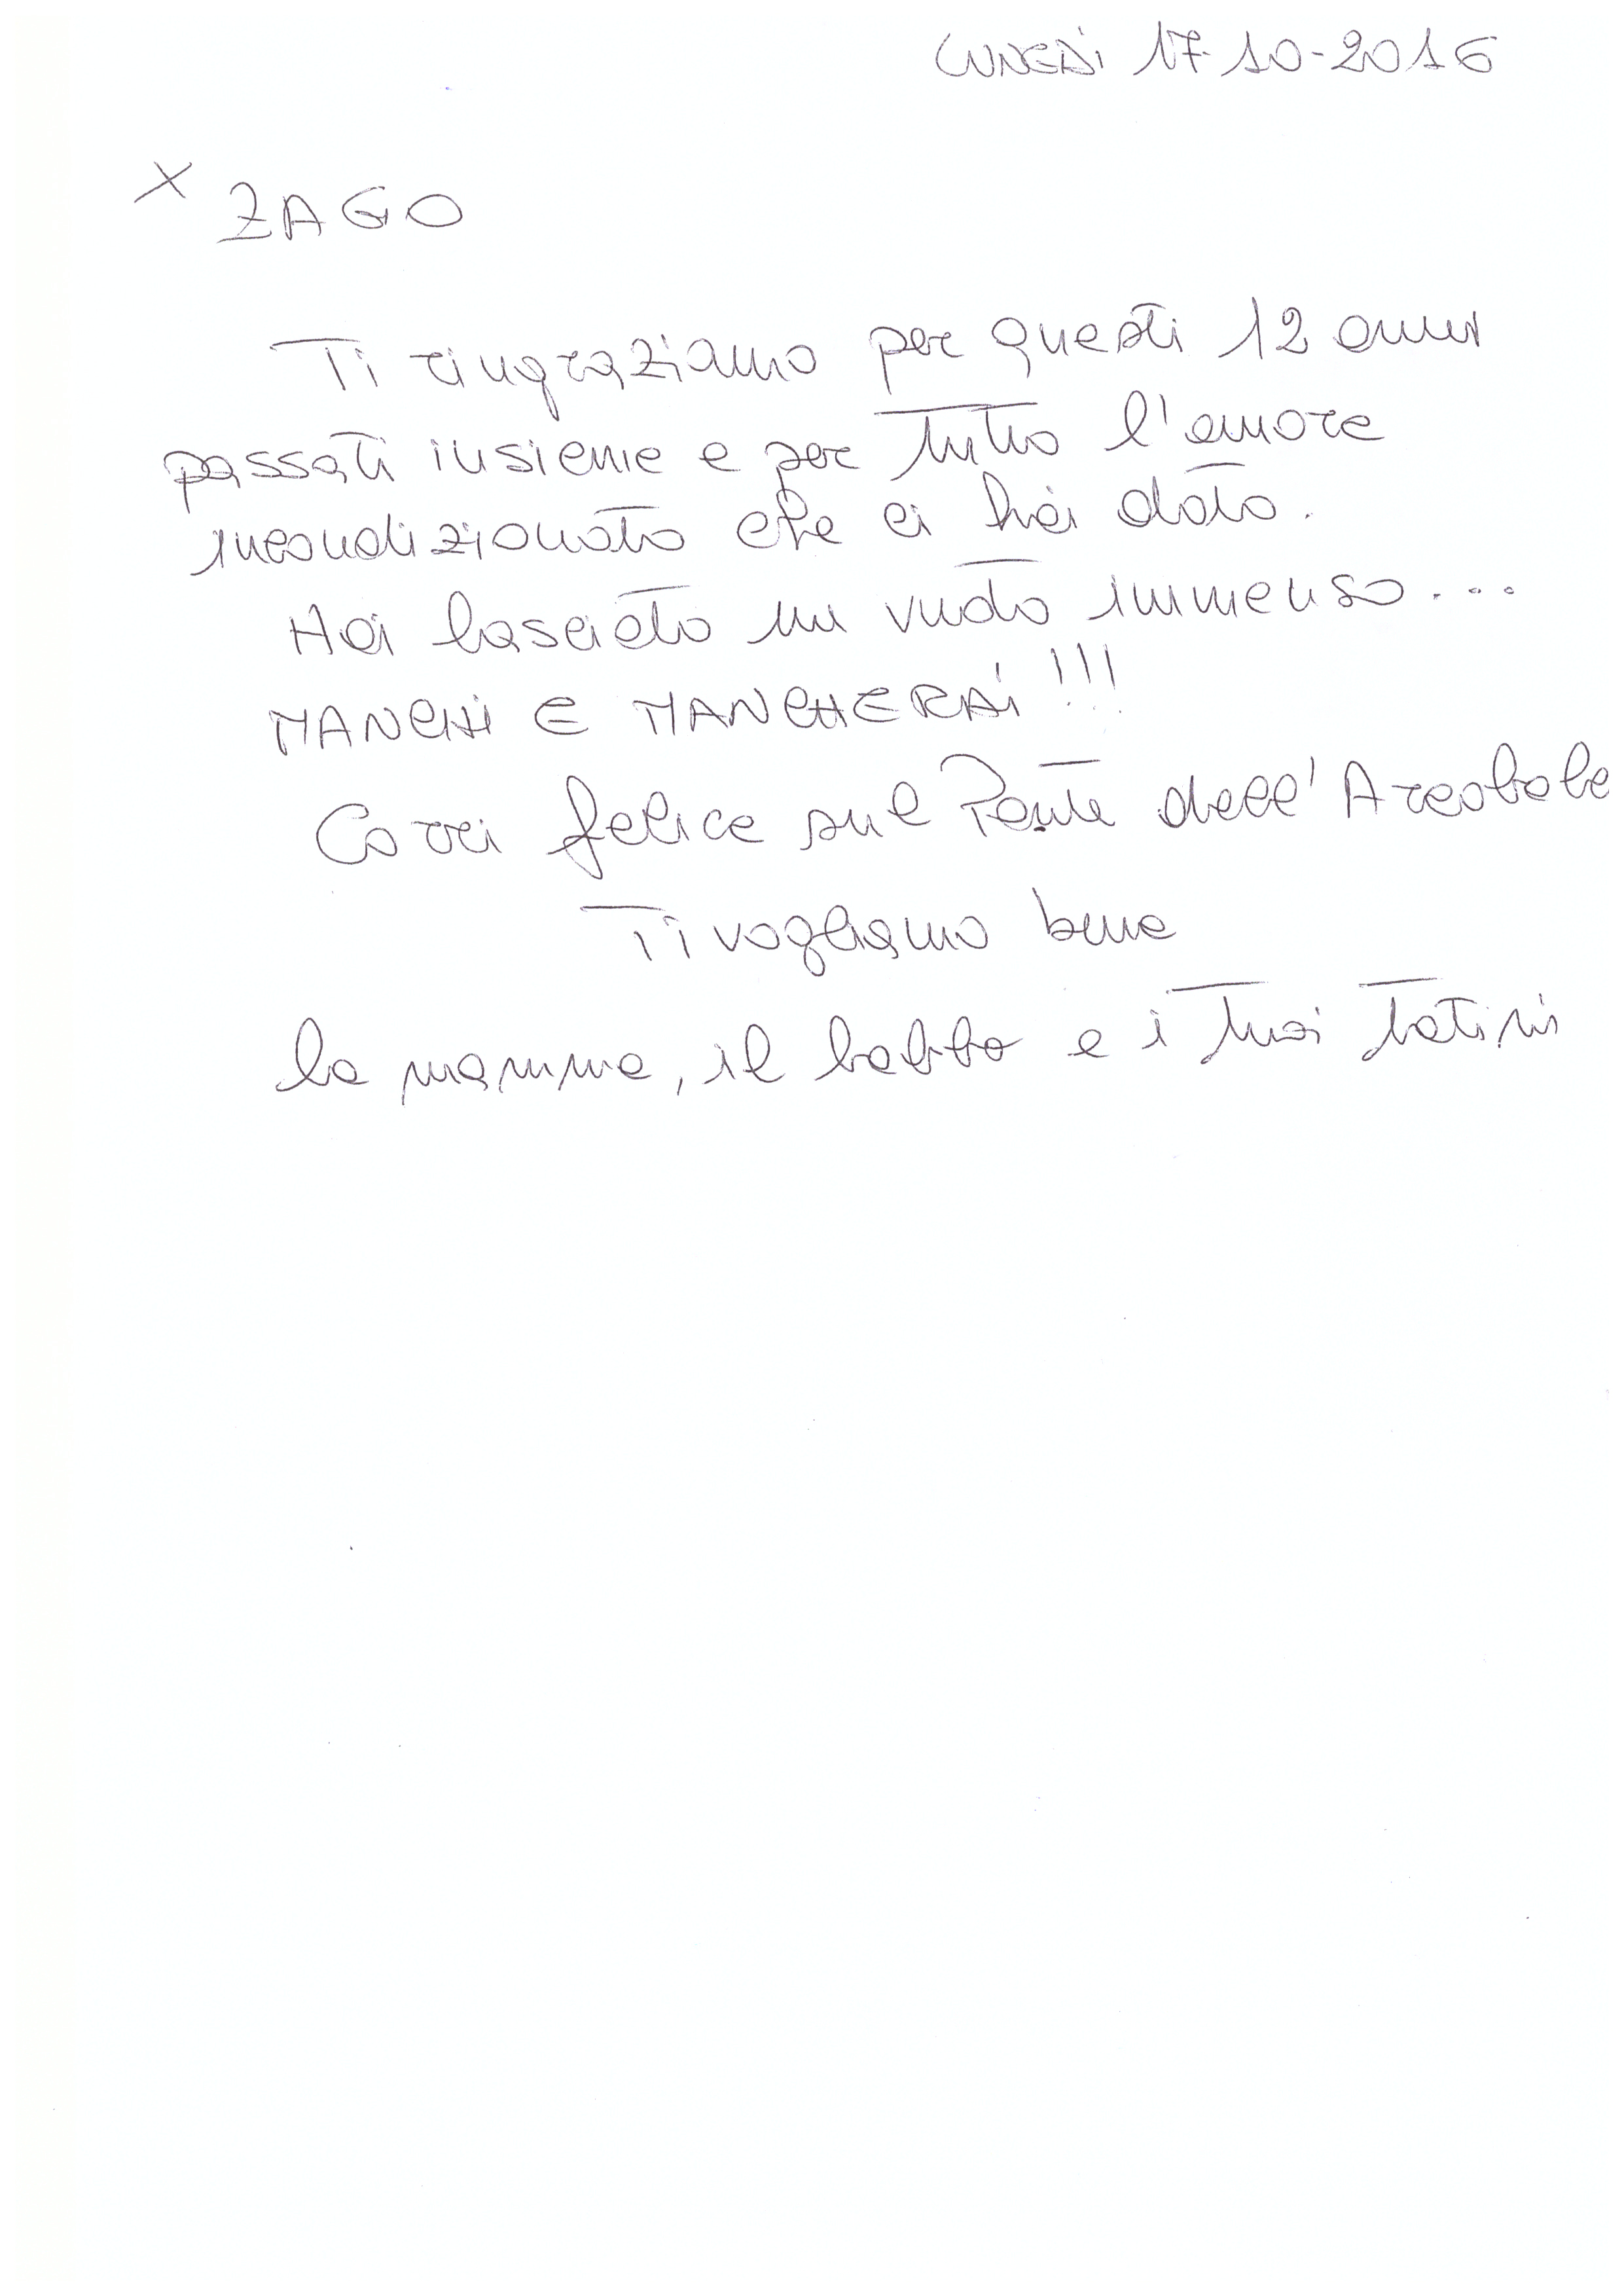 LUNEDì 17-10-2016
X ZAGO
Ti ringraziamo per questi 12 anni
passati insieme e per tutto l'amore
incondizionato che ci hai dato.
Hai lasciato un vuoto immenso....
MANCHI E MANCHERAI!!!
Corri felice sul Ponte dell'Arcobale
Ti vogliamo bene
la mamma, il babbo e i tuoi tatini